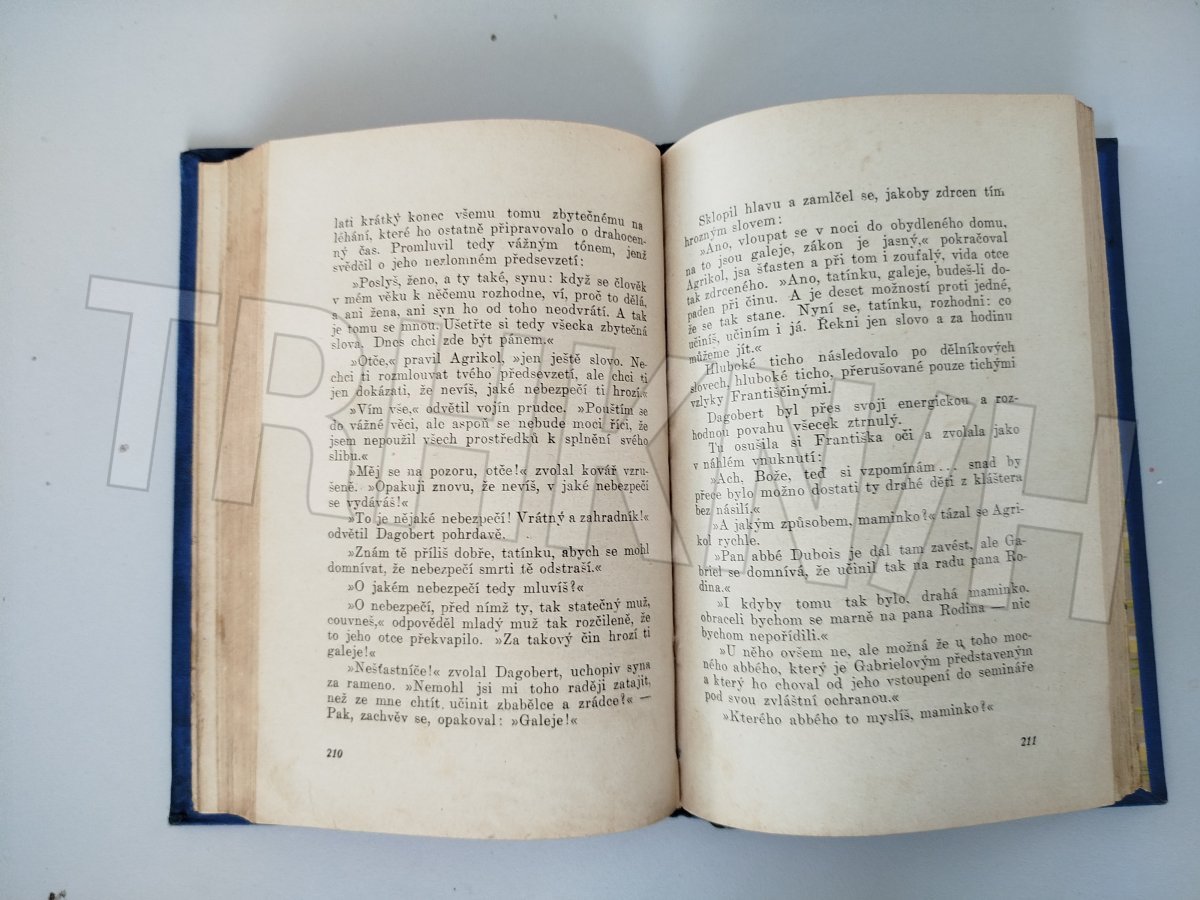 lati krátký konec všemu tomu zbytečnému na
léhání, které ho ostatně připravovalo o drahocen-
ný čas. Promluvil tedy vážným tónem, jenž
svědčil o jeho nezlomném předsevzetí:
»Poslyš, ženo, a ty také, synu: když se člověk
v mém věku k něčemu rozhodne, ví, proč to dělá,
a ani žena, ani syn ho od toho neodvrátí. A tak
je tomu se mnou. Ušetřte si tedy všecka zbytečná
slova. Dnes chci zde být pánem.«
»Otče,« pravil Agrikol, »jen ještě slovo. Ne-
chci ti rozmlouvat tvého předsevzetí, ale chci ti
jen dokázati, že nevíš, jaké nebezpečí ti hrozí.«
»Vím vše,« odvětil vojín prudce. »Pouštím se
do vážné věci, ale aspoň se nebude moci říci, že
jsem nepoužil všech prostředků k splnění svého
slibu.«
»Měj se na pozoru, otče!« zvolal kovář vzru-
šeně. »Opakuji znovu, že nevíš, v jaké nebezpečí
se vydáváš!«
»To je nějaké nebezpečí! Vrátný a zahradník!«
odvětil Dagobert pohrdavě.
»Znám tě příliš dobře, tatínku, abych se mohl
domnívat, že nebezpečí smrti tě odstraší.«
»O jakém nebezpečí tedy mluvíš?«
»O nebezpečí, před nímž ty, tak statečný muž,
couvneš,« odpověděl mladý muž tak rozčileně, že
to jeho otce překvapilo. »Za takový čin hrozí ti
galeje!«
»Nešťastníče!« zvolal Dagobert, uchopiv syna
za rameno. »Nemohl jsi mi toho raději zatajit,
než ze mne chtít učinit zbabělce a zrádce?« —
Pak, zachvěv se, opakoval: »Galeje!«
210
Sklopil hlavu a zamlčel se, jakoby zdrcen tím
hrozným slovem:
»Ano, vloupat se v noci do obydleného domu,
na to jsou galeje, zákon je jasný,« pokračoval
Agrikol, jsa šťasten a při tom i zoufalý, vida otce
tak zdrceného. »Ano, tatínku, galeje, budeš-li do-
paden při činu. A je deset možností proti jedné,
že se tak stane. Nyní se, tatínku, rozhodni: co
učiníš, učiním i já. Řekni jen slovo a za hodinu
můžeme jít.«
Hluboké ticho následovalo po dělníkových
slovech, hluboké ticho, přerušované pouze tichými
vzlyky Františčinými.
Dagobert byl přes svoji energickou a roz-
hodnou povahu všecek ztrnulý.
Tu osušila si Františka oči a zvolala jako
v náhlém vnuknutí:
»Ach, Bože, teď si vzpomínám... snad by
přece bylo možno dostati ty drahé děti z kláštera
bez násilí.«
»A jakým způsobem, maminko?« tázal se Agri-
kol rychle.
»Pan abbé Dubois je dal tam zavést, ale Ga-
briel se domnívá, že učinil tak na radu pana Ro-
dina.«
»I kdyby tomu tak bylo, drahá maminko,
obraceli bychom se marně na pana Rodina — nic
bychom nepořídili.«
»U něho ovšem ne, ale možná že u toho moc-
ného abbého, který je Gabrielovým představeným
a který ho choval od jeho vstoupení do semináře
pod svou zvláštní ochranou.«
»Kterého abbého to myslíš, maminko?«
211
TRHKNIH